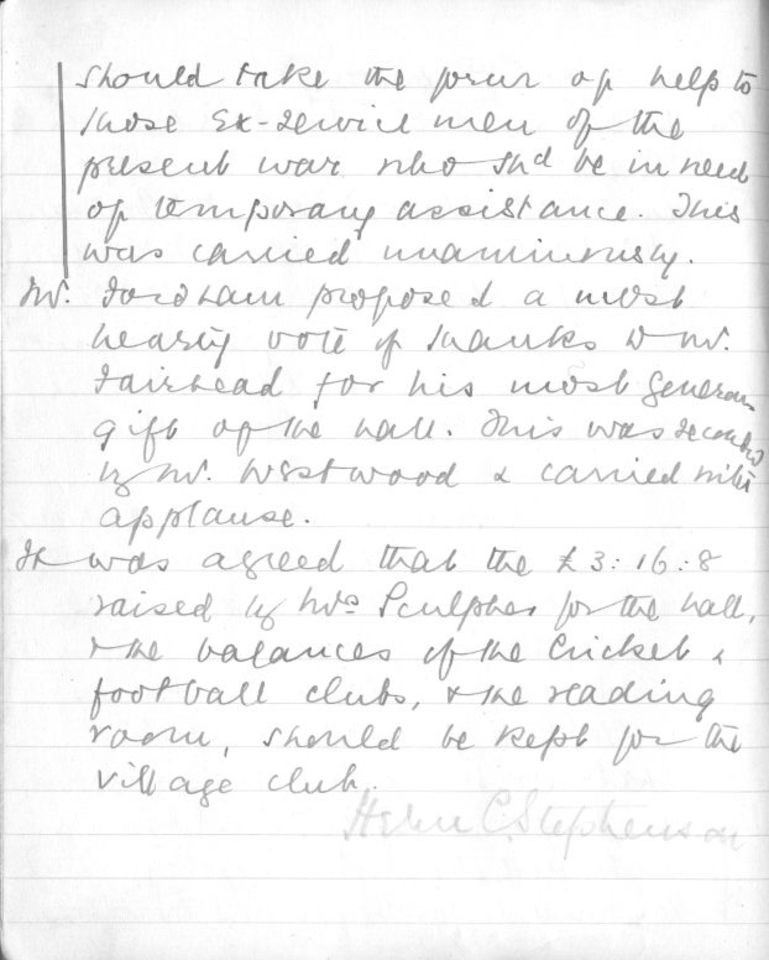 should take the form of help to
those Ex-service men of the
present war who shd be in need
of temporary assistance. This
was carried unanimously.
Mr. Fordham proposed a most
hearty vote of thanks to Mr.
Fairhead for his most generous
gift of the hall. This was seconded
by Mr. Westwood & carried with
applause.
It was agreed that the £3:16:8
raised by Mrs Sculpher for the hall,
& the balances of the Cricket &
football clubs, & the reading
room, should be kept for the
village club.
Helen C. Stephenson